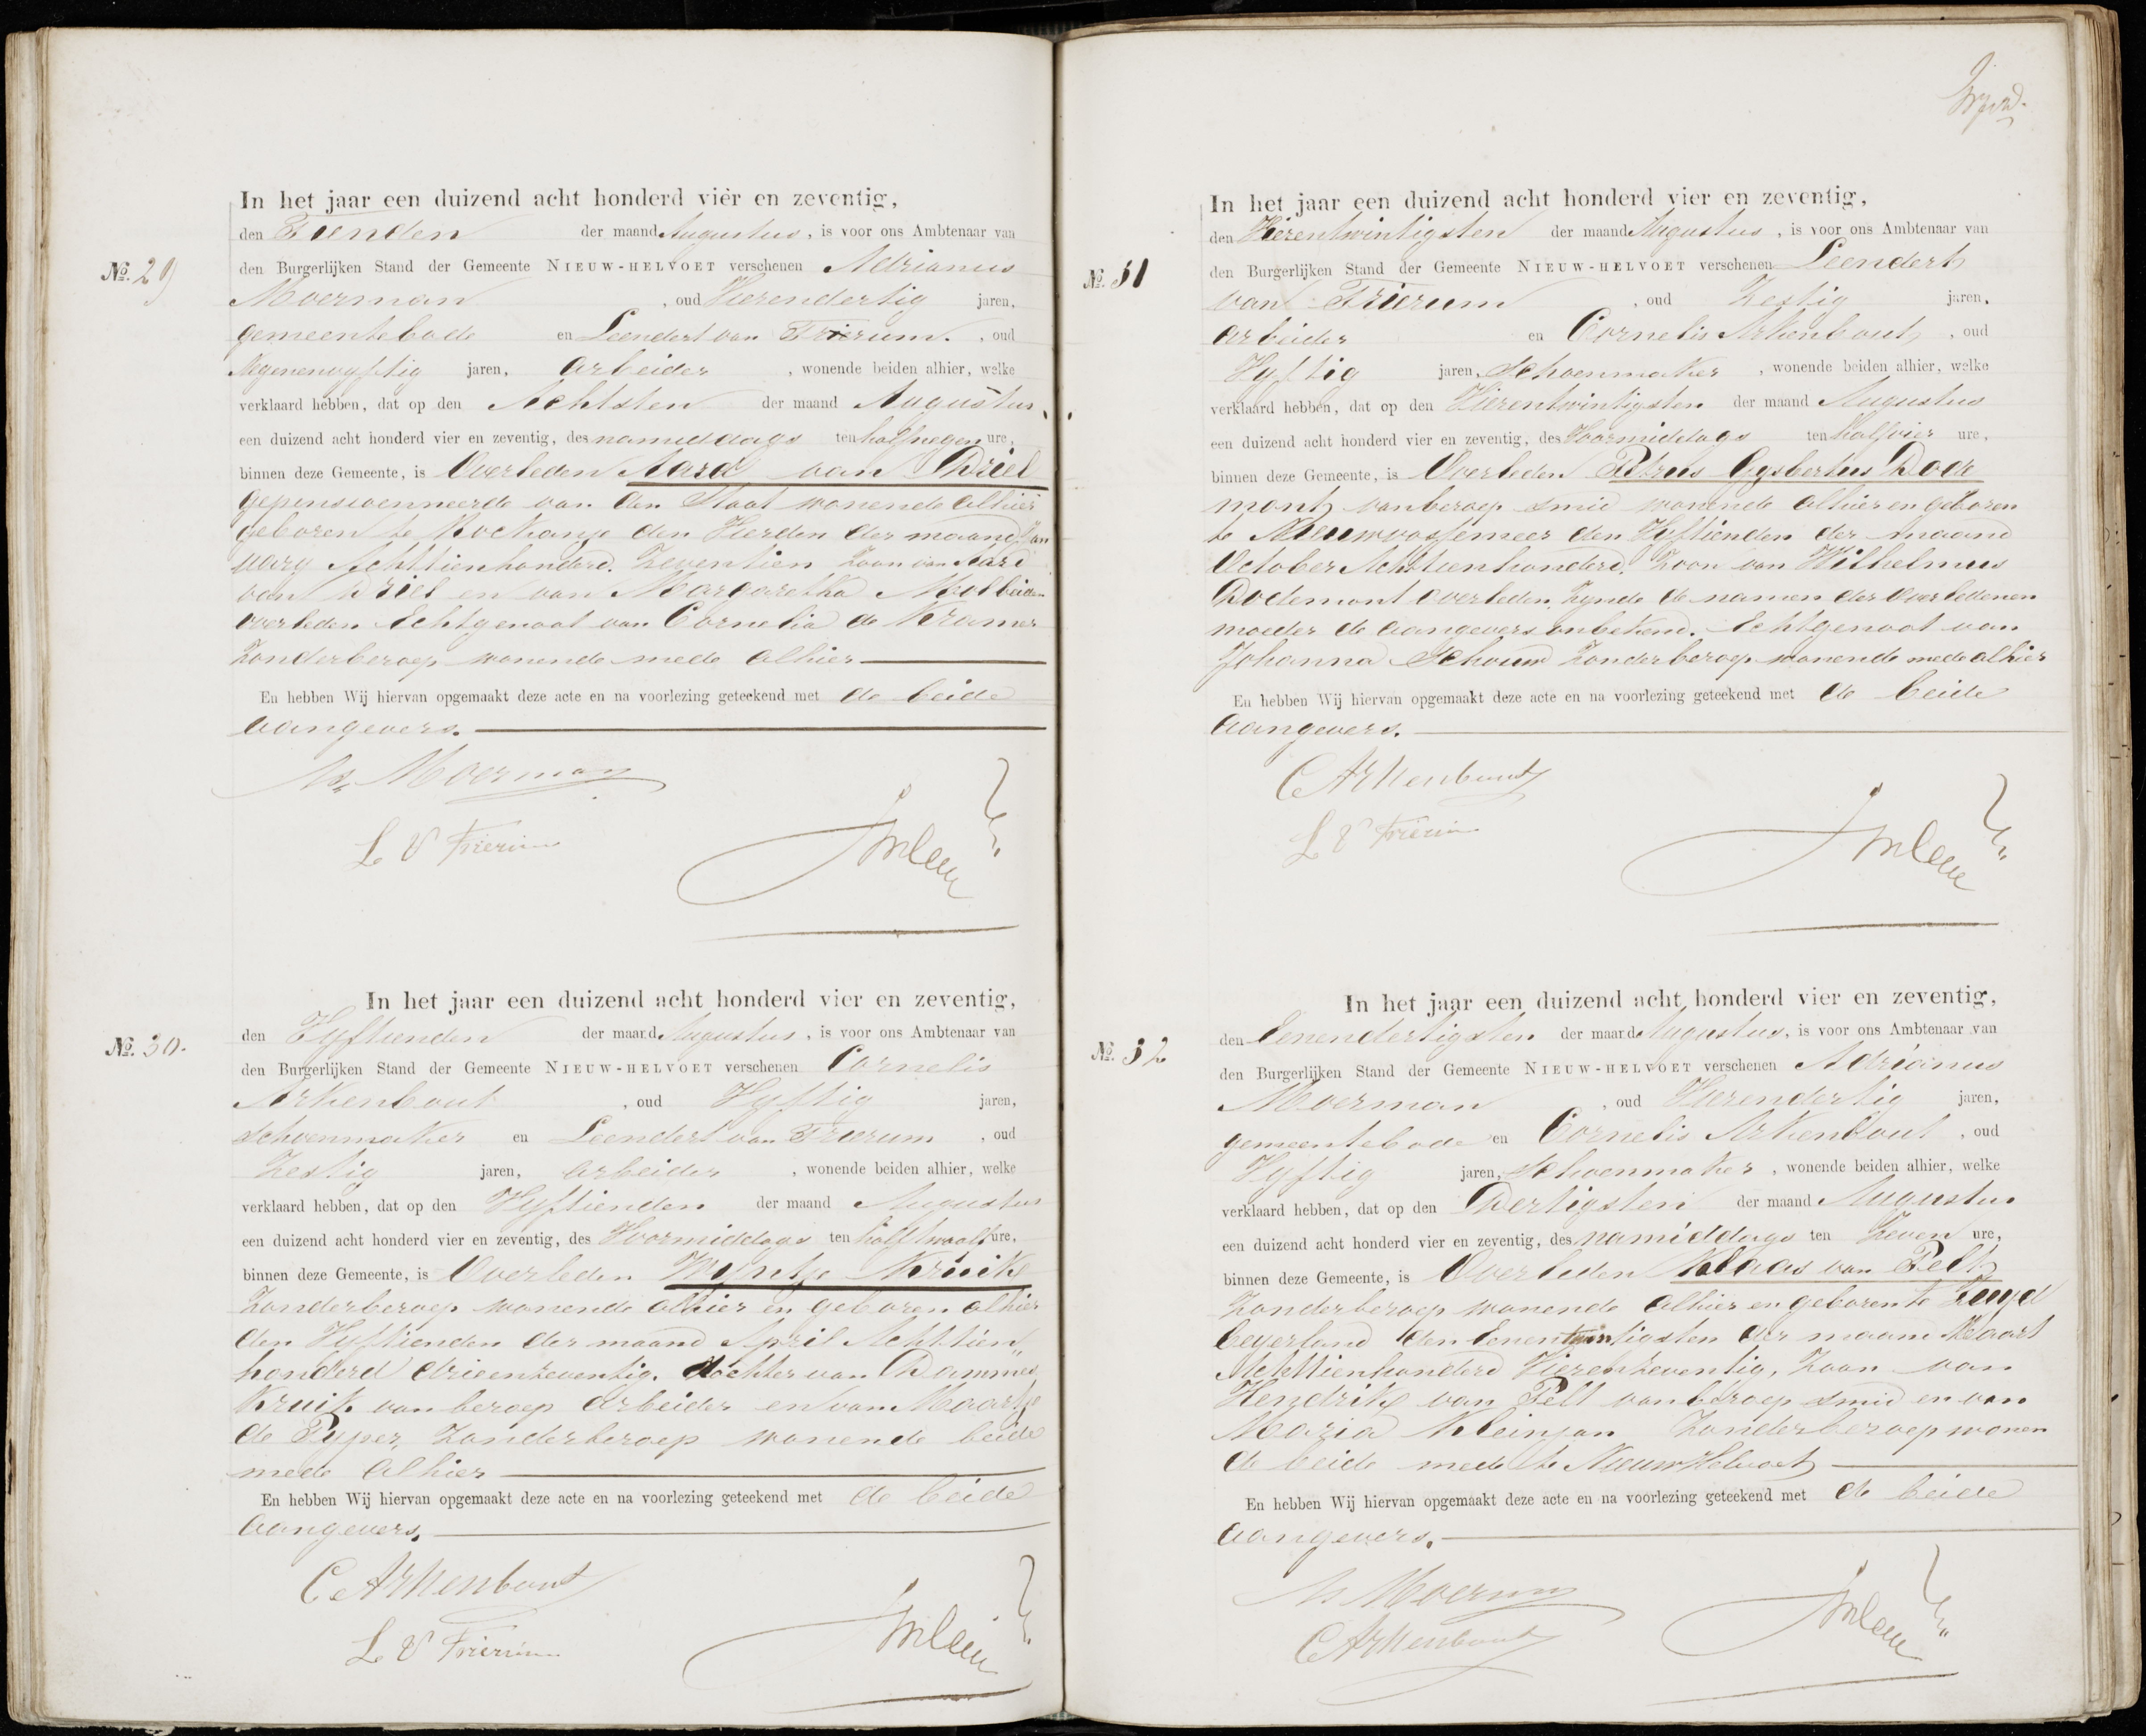 In het jaar een duizend acht honderd vier en zeventig,
den Tienden der maand Augustus, is voor ons Ambtenaar van
No. 29 den Burgerlijken Stand der Gemeente NIEUW-HELVOET verschenen Adrianus
Moerman, oud Vierendertig jaren,
gemeentebode en Leendert van Trierum., oud
Negenenvyftig jaren, arbeider, wonende beiden alhier, welke
verklaard hebben, dat op den Achtsten der maand Augustus,
een duizend acht honderd vier en zeventig, des namiddags ten halfnegen ure,
binnen deze Gemeente, is Overleden Aard van Driel
gepensioenneerde van den Staat wonende alhier
geboren te Rockanje den Vierden der maand Jan
uary Achttienhonderd Zeventien Zoon van Aard
van Driel en van Margaretha Mol beiden
overleden Echtgenoot van Cornelia de Kramer
Zonderberoep wonende mede alhier
En hebben Wij hiervan opgemaakt deze acte en na voorlezing geteekend met de beide
aangevers.
As. Moerman
L V Trierum
In het jaar een duizend acht honderd vier en zeventig,
den Vyftienden der maand Augustus, is voor ons Ambtenaar van
No. 30. den Burgerlijken Stand der Gemeente NIEUW-HELVOET verschenen Cornelis
Arkenbout, oud Vyftig jaren,
schoenmaker en Leendert van Trierum, oud
Zestig jaren, arbeider, wonende beiden alhier, welke
verklaard hebben, dat op den Vyftienden der maand Augustus
een duizend acht honderd vier en zeventig, des Voormiddags ten halftwaalf ure,
binnen deze Gemeente, is Overleden Wyntje Kruik
Zonderberoep wonende alhier en geboren alhier
den Vyftienden der maand April Achttien"
honderd drieenzeventig. dochter van Dammes
Kruik van beroep arbeider en van Maartje
de Pyper, Zonderberoep wonende beide
mede alhier
En hebben Wij hiervan opgemaakt deze acte en na voorlezing geteekend met de beide
aangevers.
C Arkenbout
L V Trierum
In het jaar een duizend acht honderd vier en zeventig,
den Vierentwintigsten der maand Augustus, is voor ons Ambtenaar van
No. 31 den Burgerlijken Stand der Gemeente NIEUW-HELVOET verschenen Leendert
van Trierum, oud Zestig jaren.
arbeider en Cornelis Arkenbout, oud
Vyftig jaren, schoenmaker, wonende beiden alhier, welke
verklaard hebben, dat op den Vierentwintigsten der maand Augustus
een duizend acht honderd vier en zeventig, des Voormiddags ten halfvier ure,
binnen deze Gemeente, is Overleden Petrus Gysbertus Dode
mont, van beroep smid wonende alhier en geboren
te Nieuwvossemeer den Vyftienden der maand
October Achttienhonderd. Zoon van Wilhelmus
Dodemont overleden, Zynde de namen der overledenen
moeder de aangevers onbekend. Echtgenoot van
Johanna Schouw Zonder beroep wonende mede alhier
En hebben Wij hiervan opgemaakt deze acte en na voorlezing geteekend met de beide
aangevers.
C Arkenbout
L V Trierum
In het jaar een duizend acht honderd vier en zeventig,
den Eenendertigsten der maand Augustus, is voor ons Ambtenaar van
No. 32 den Burgerlijken Stand der Gemeente NIEUW-HELVOET verschenen Adrianus
Moerman, oud Vierendertig jaren,
gemeentebode en Cornelis Arkenbout, oud
Vyftig jaren, schoenmaker, wonende beiden alhier, welke
verklaard hebben, dat op den Dertigsten der maand Augustus
een duizend acht honderd vier en zeventig, des namiddags ten Zeven ure,
binnen deze Gemeente, is Overleden Klaas van Pelt
Zonderberoep wonende alhier en geboren te Zuyd
beyerland den Eenentwintigsten der maand Maart
Achttienhonderd Vierenzeventig, Zoon van
Hendrik van Pelt van beroep smid en van
Maria Kleinjan Zonderberoep wonen
de beide mede te Nieuw Helvoet
En hebben Wij hiervan opgemaakt deze acte en na voorlezing geteekend met de beide
aangevers.
As Moerman
C Arkenbout